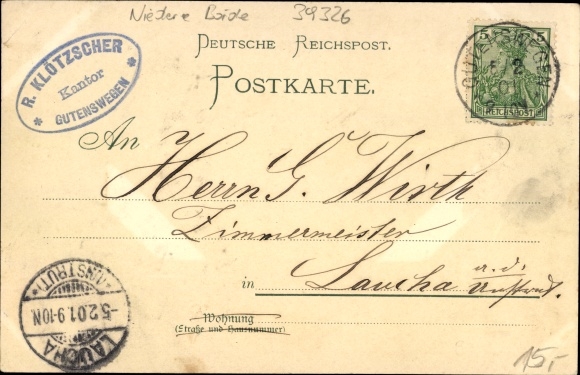 Niedere Börde 39326
R. KLÖTZSCHER
Kantor
* GUTENSWEGEN *
DEUTSCHE REICHSPOST.
POSTKARTE.
5 5
REICHSPOST
GUTENSWEGEN
An
Herrn G. Wirth
Zimmermeister
in Laucha a. d. Unstrut.
LAUCHA
-5.2.01.9-10N.
* (UNSTRUT) *
Wohnung
(Straße und Hausnummer)
15,-